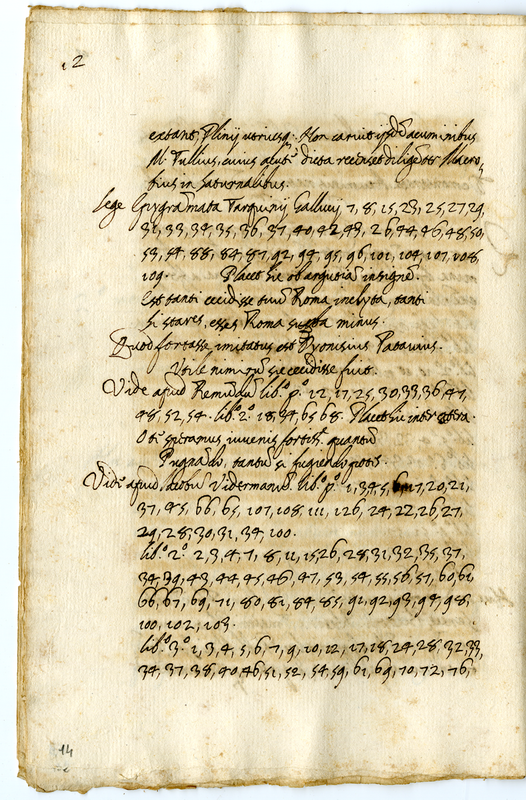 2
extant Plinij utriusq. Non caruit ijsdē acuminibus
M. Tullius, cuius acutē dicta recenset diligēter Macro,
bius in Saturnalibus.
Lege Epygrāmata Tarquinij Gallutij 7, 8, 15, 23, 25, 27, 29,
31, 33, 34, 35, 36, 37, 40, 42, 43, 26, 44, 46, 48, 50,
53, 54, 88, 84, 87, 92, 94, 95, 96, 101, 104, 107, 108
109. Placet hic ob argutiā insignē.
Est tanti cecidisse tuū Roma inclyta, tanti
Si stares, esses Roma minus.
Quod fortasse imitatus est Dyonisius Patavius.
Utile cecidisse fuit.
Vide apud Remundū lib.º p.º 12, 17, 25, 30, 33, 36, 47,
48, 52, 54. lib.º 2.º 18, 34, 65, 68. Placet hic inter cętera.
iuvenis fortis quantū
Pugnādo, tantū si fugiendo potes.
Vide apud Vidermanū lib.º p.º 1, 3, 4, 5, 17, 20, 21,
37, 45, 66, 65, 107, 108, 111, 126, 24, 22, 26, 27,
29, 28, 30, 31, 34, 100.
lib.º 2.º 2, 3, 4, 7, 8, 11, 15, 26, 28, 31, 32, 35, 37,
34, 39, 43, 44, 45, 46, 47, 53, 54, 55, 56, 57, 60, 61
66, 67, 69, 71, 80, 81, 84, 85, 91, 92, 93, 94, 98,
100, 102, 103.
lib.º 3.º 1, 3, 4, 5, 6, 7, 9, 10, 12, 17, 18, 24, 28, 32, 33,
34, 37, 38, 40, 46, 51, 52, 54, 59, 61, 69, 70, 72, 76,
14